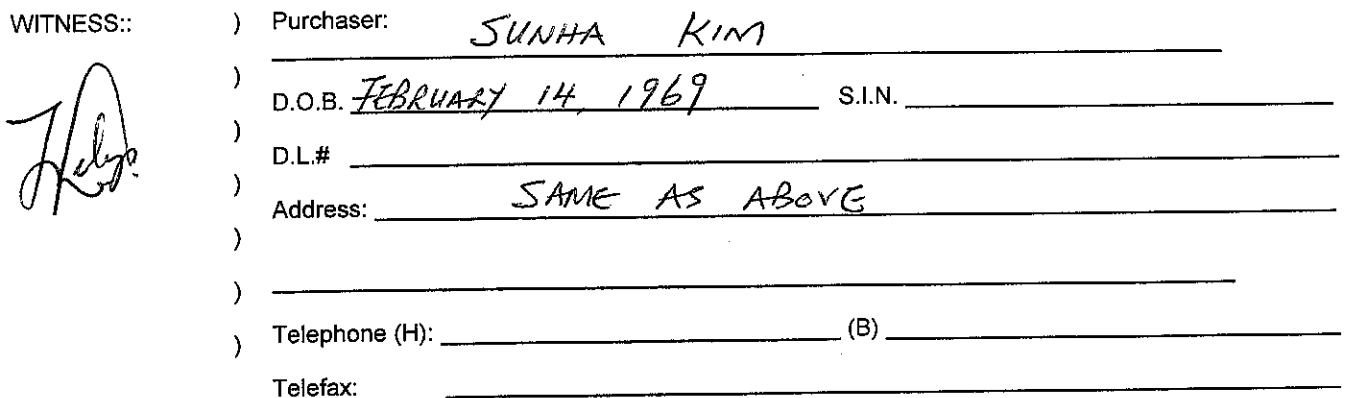 WITNESS:: ) Purchaser: SUNHA KIM
) D.O.B. FEBRUARY 14, 1969 S.I.N.
)
) D.L.#
) Address: SAME AS ABOVE
)
)
) Telephone (H): (B)
Telefax: